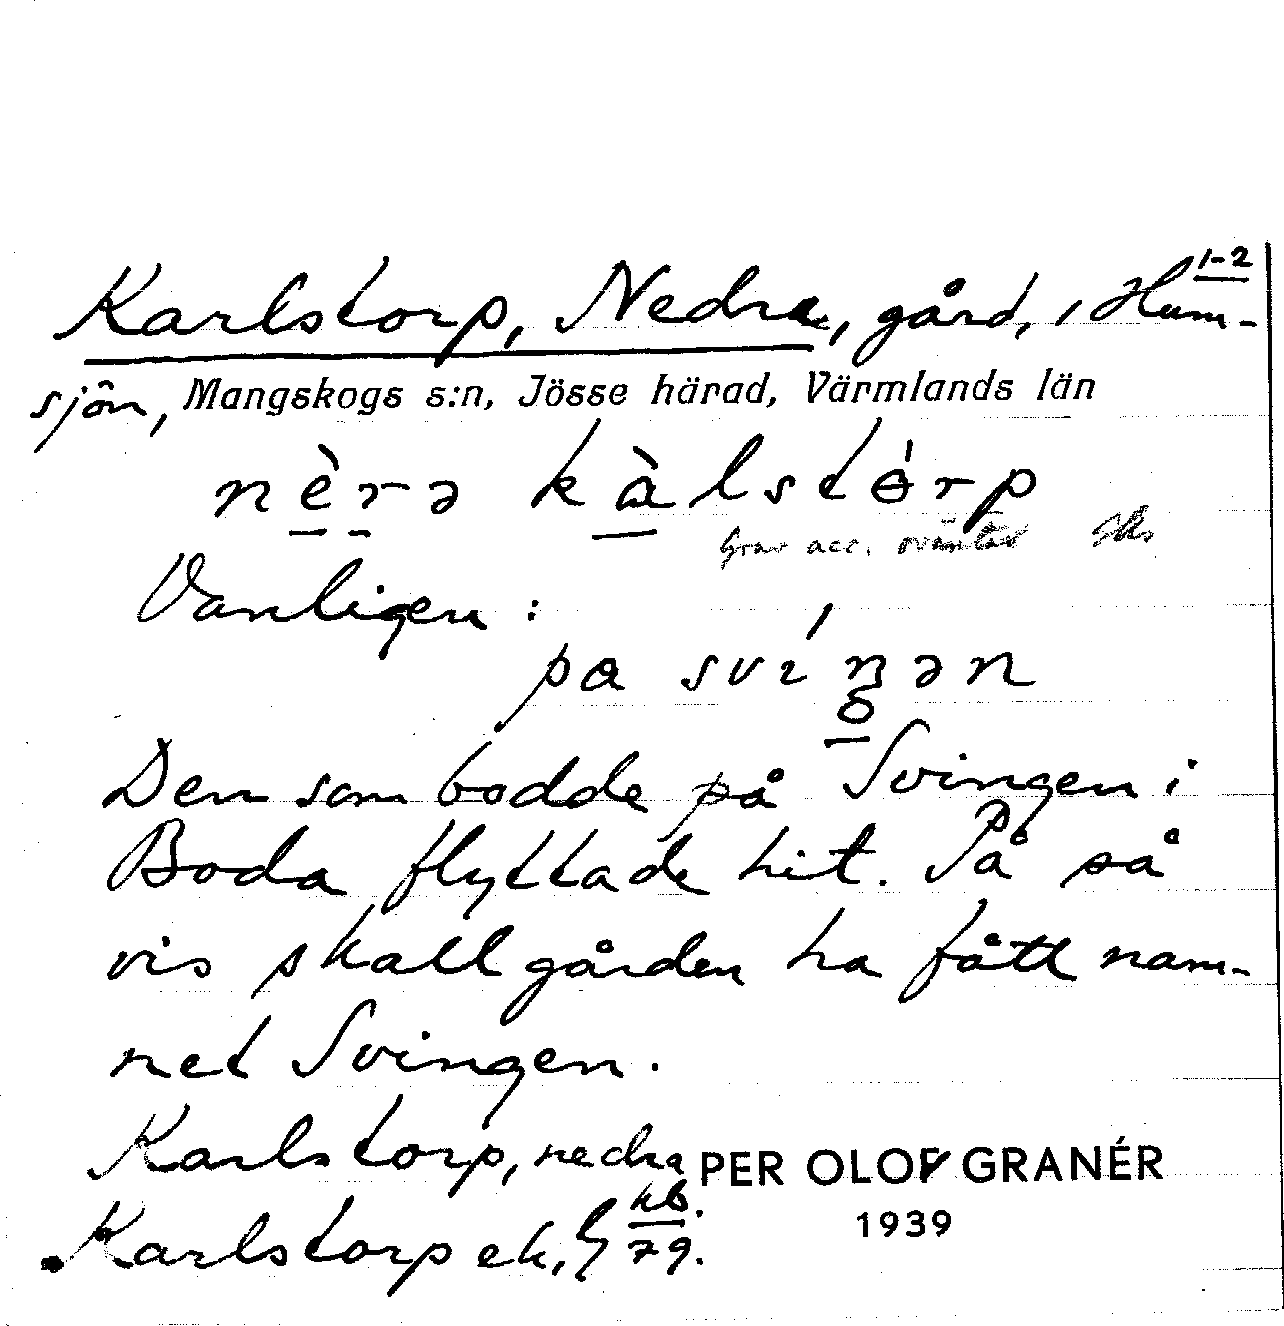 Karlstorp, Nedra, gård, i Hum- 1-2
sjön, Mangskogs s:n, Jösse härad, Värmlands län
nèrə kàlstórp
grav acc. oväntad
Vanligen:
pa svíŋən
Den som bodde på Svingen i
Boda flyttade hit. På så
vis skall gården ha fått nam-
net Svingen.
Karlstorp, nedra kb.
PER OLOF GRANÉR
Karlstorp ek, 79.
1939